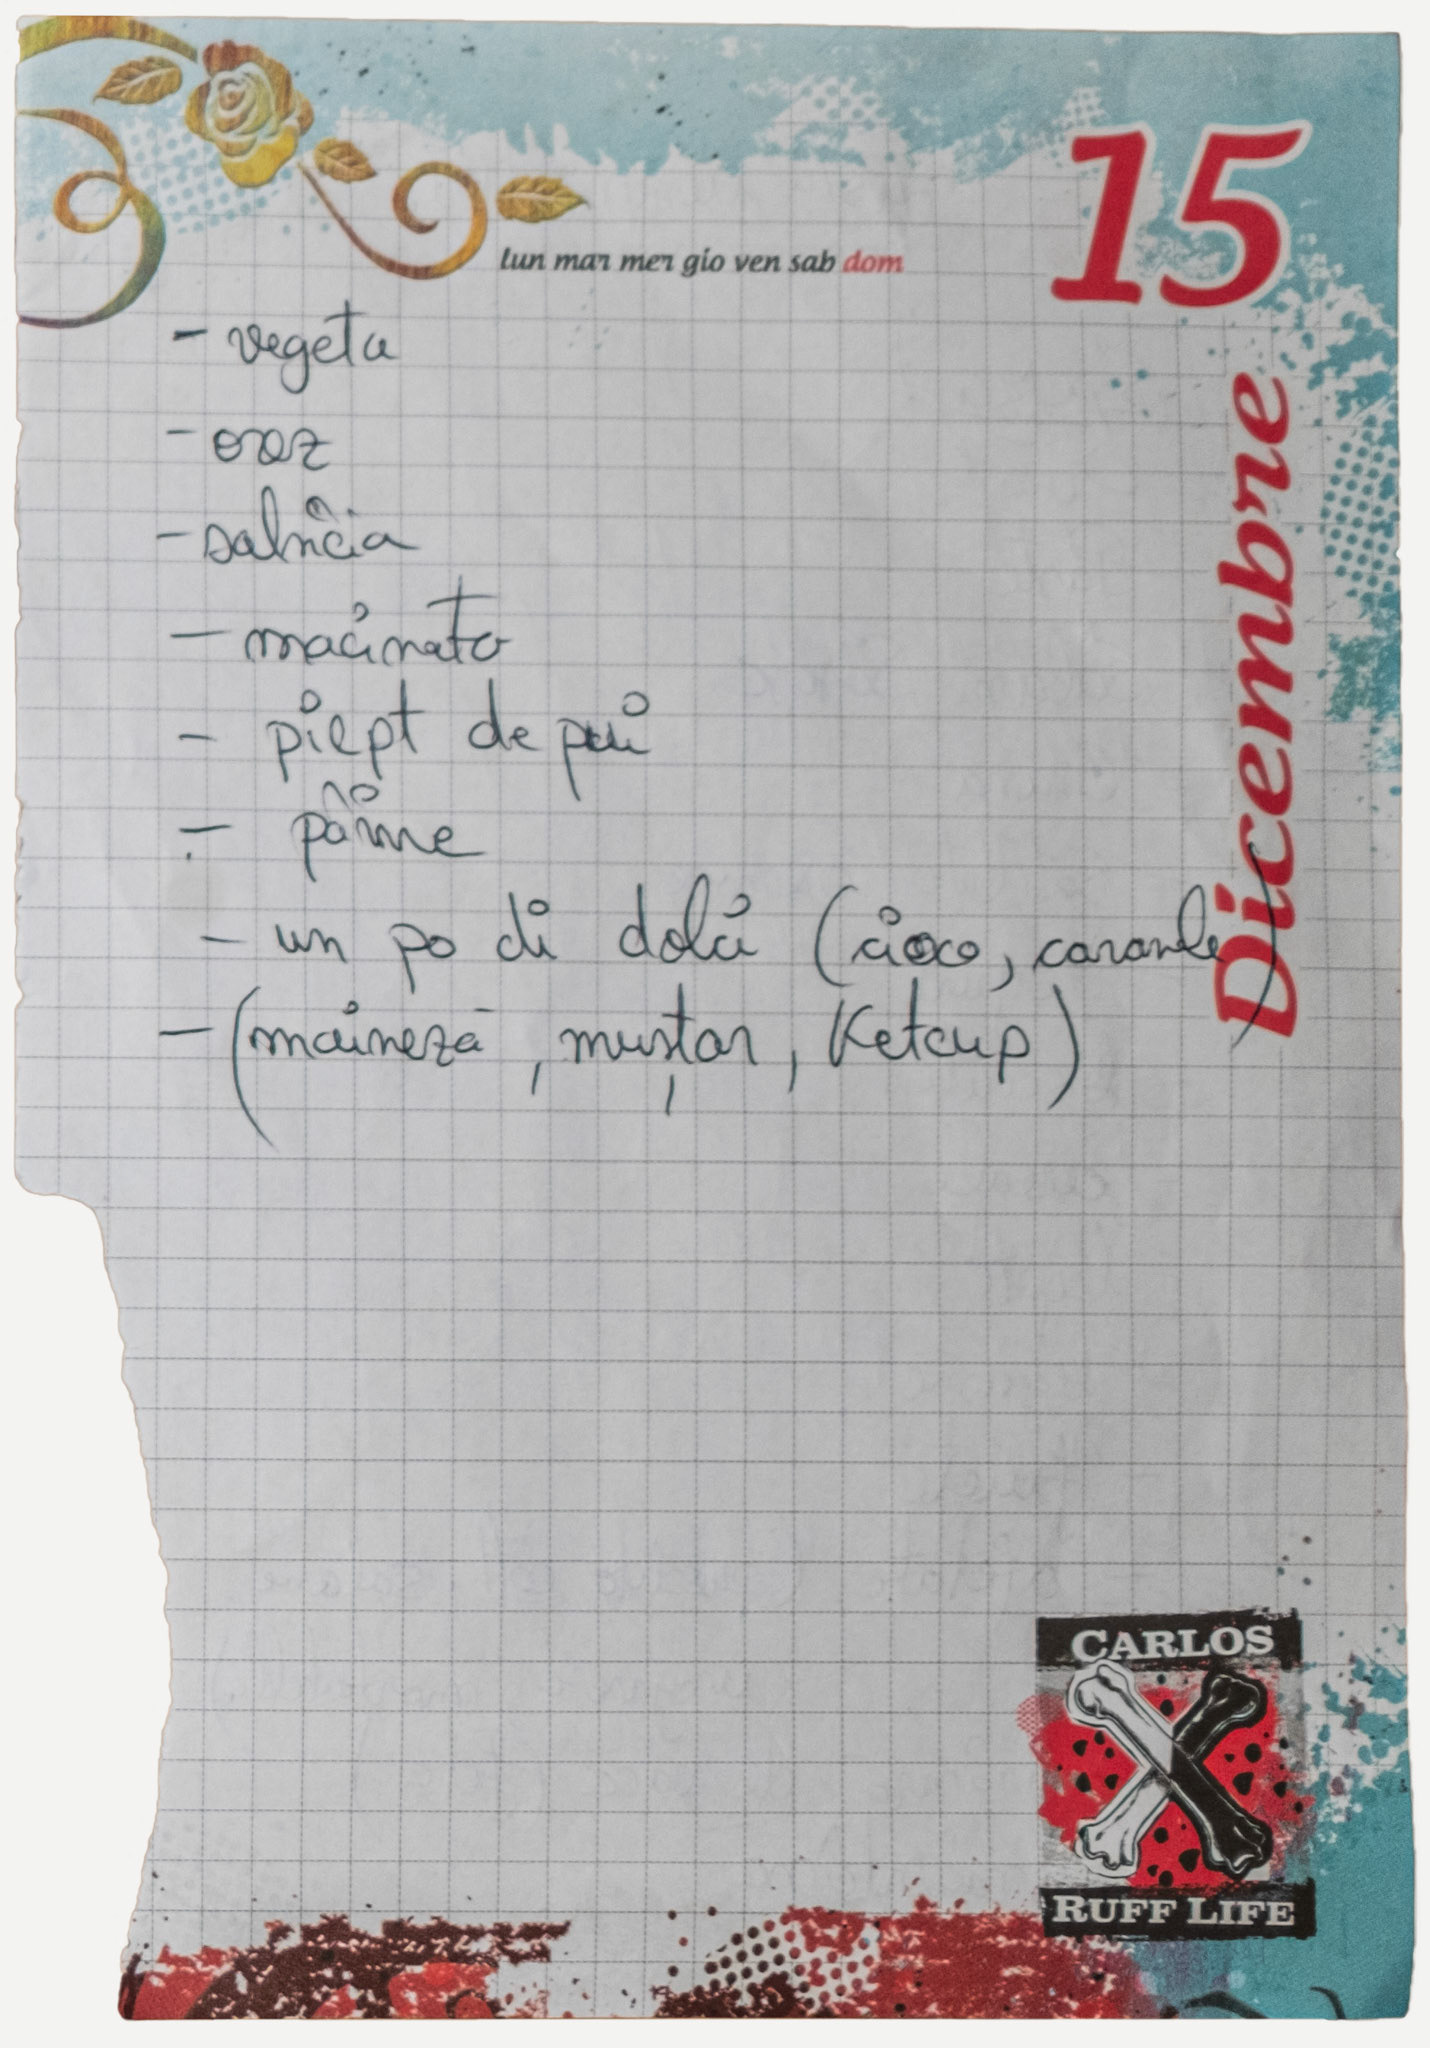 15
lun mar mer gio ven sab dom
Dicembre
- vegeta
- orez
- salsicia
- macinato
- piept de pui
- pâine
- un po di dolci (cioco, caramele)
- (maineză, muștar, Ketcup)
CARLOS
RUFF LIFE